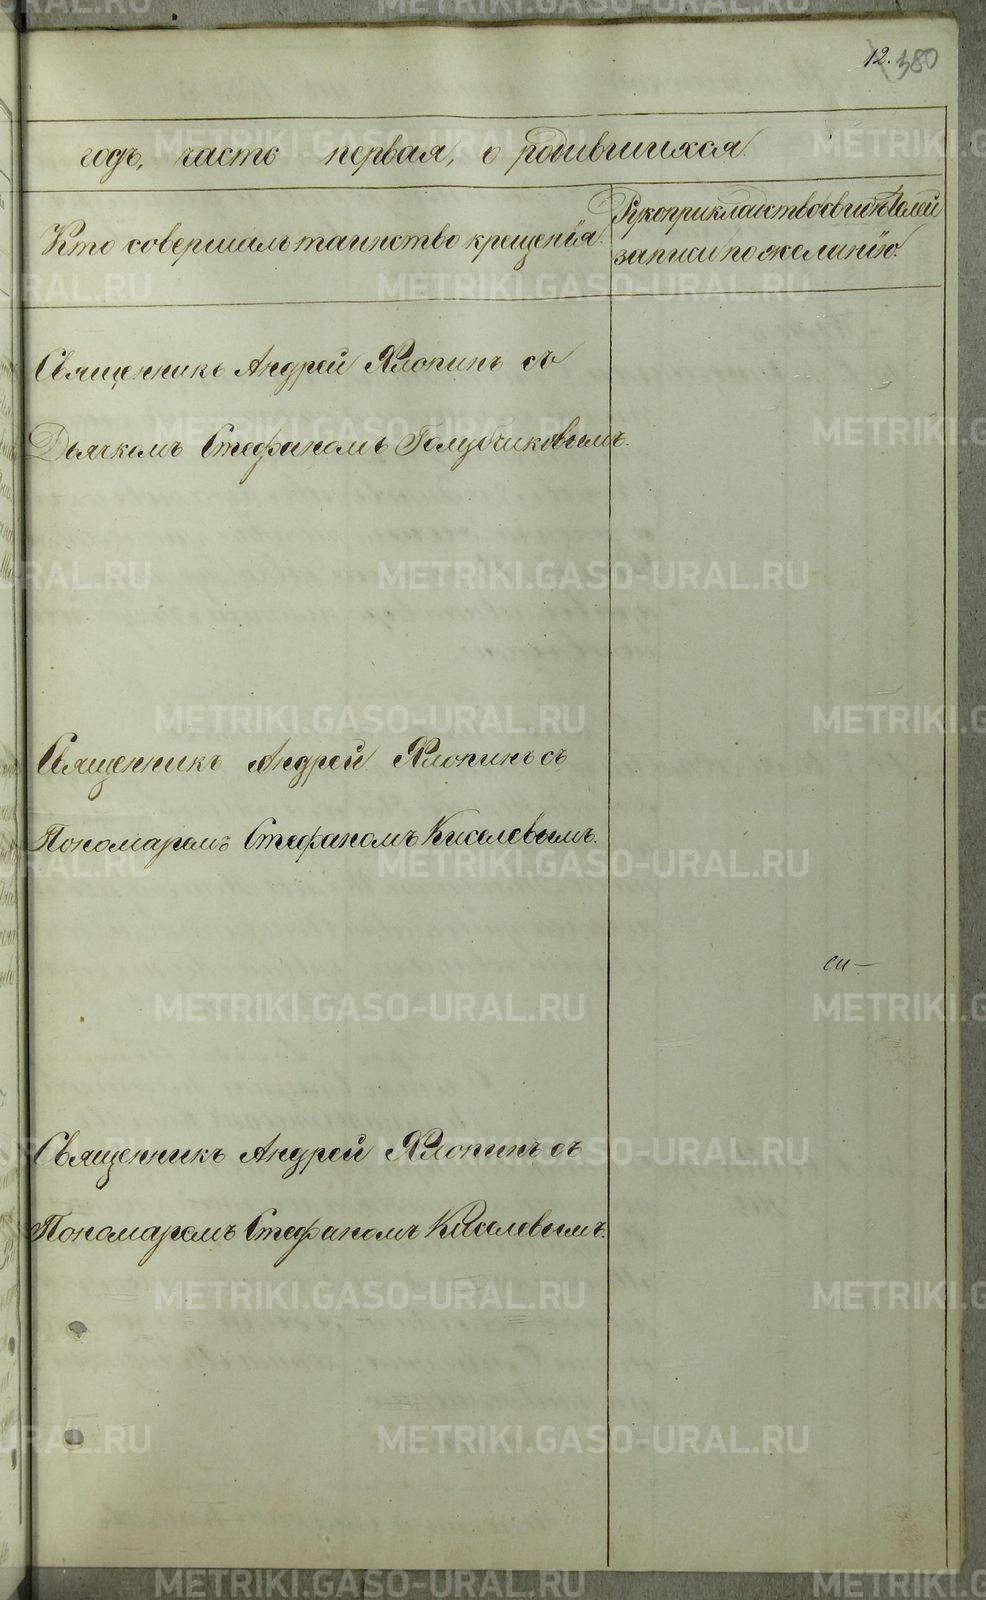 12. 380
годъ, часть первая, о родившихся.
Кто совершалъ таинство крещенія.
Рукоприкладство свидѣтелей
записи по желанію.
Священникъ Андрей Хлопинъ съ
Дьячкомъ Стефаномъ Голубчиковымъ.
Священникъ Андрей Хлопинъ съ
Пономаремъ Стефаномъ Киселевымъ.
Священникъ Андрей Хлопинъ съ
Пономаремъ Стефаномъ Киселевымъ.
METRIKI.GASO-URAL.RU